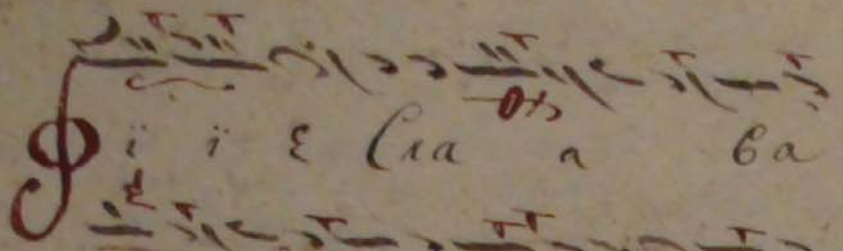 ї ї є Сла а ва